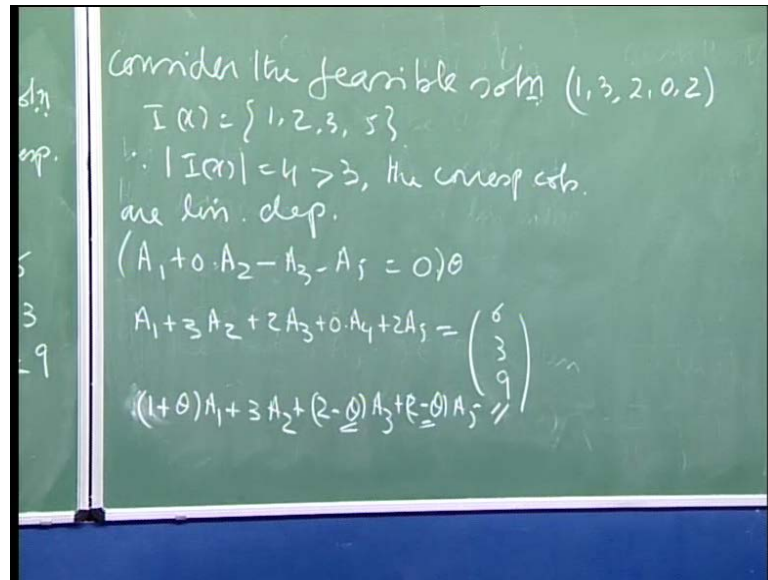 soln
esp.
3
9
Consider the feasible soln (1, 3, 2, 0, 2)
I(x) = {1, 2, 3, 5}
∵ |I(x)| = 4 > 3, the corresp cols.
are lin. dep.
(A₁ + 0·A₂ − A₃ − A₅ = 0)θ
A₁ + 3A₂ + 2A₃ + 0·A₄ + 2A₅ = (6 3 9)
(1+θ)A₁ + 3A₂ + (2−θ)A₃ + (2−θ)A₅ = 〃